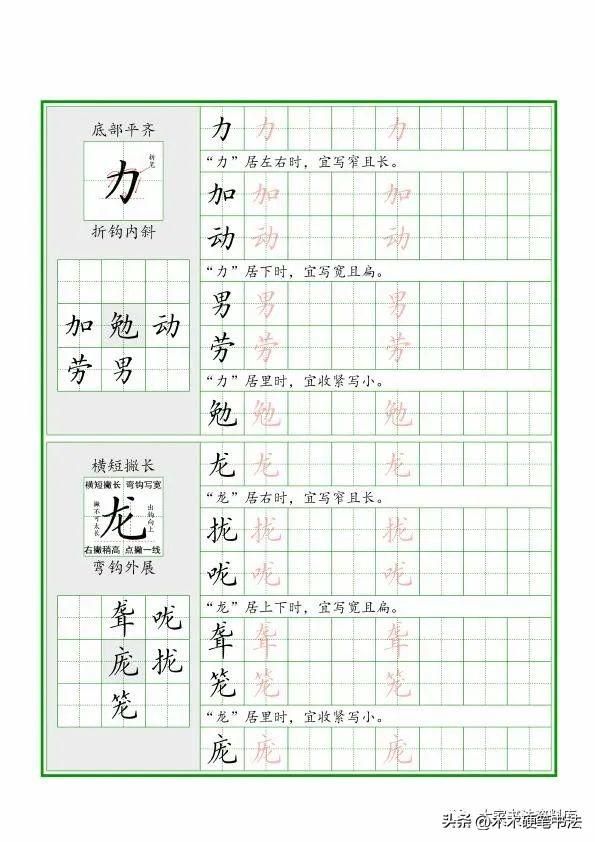 底部平齐
力
折笔
折钩内斜
加 勉 动
劳 男
力 力 力
“力”居左右时，宜写窄且长。
加 加 加
动 动 动
“力”居下时，宜写宽且扁。
男 男 男
劳 劳 劳
“力”居里时，宜收紧写小。
勉 勉 勉
横短撇长
横短撇长 弯钩写宽
撇不可太长
龙
出钩向上
右撇稍高 点撇一线
弯钩外展
聋 咙
庞 拢
笼
龙 龙 龙
“龙”居右时，宜写窄且长。
拢 拢 拢
咙 咙 咙
“龙”居上下时，宜写宽且扁。
聋 聋 聋
笼 笼 笼
“龙”居里时，宜收紧写小。
庞 庞 庞
头条 @木木硬笔书法